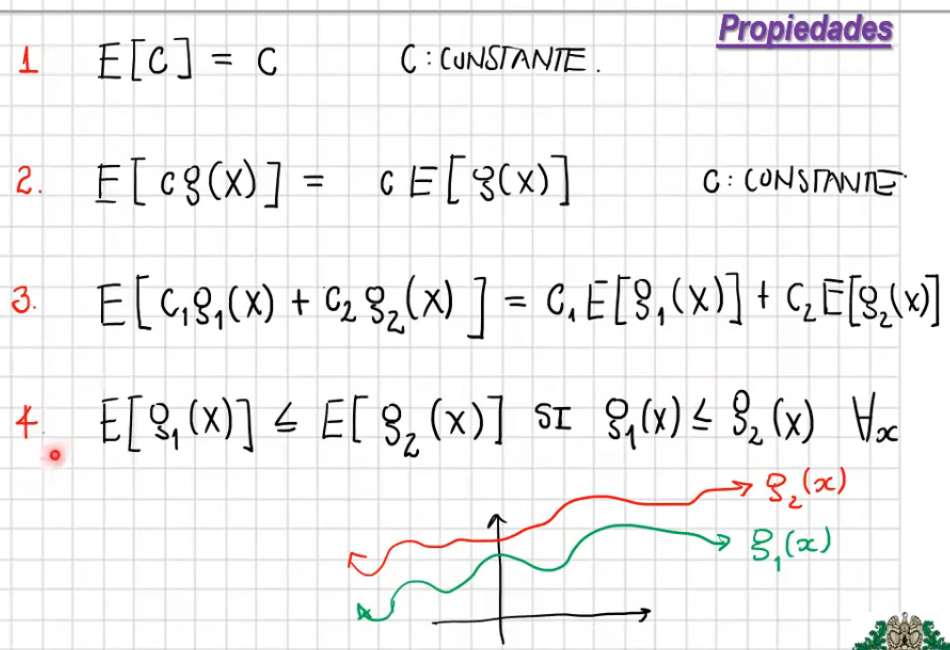 Propiedades
1 E[C] = C C : CONSTANTE.
2. E[cg(X)] = c E[g(X)] C : CONSTANTE
3. E[C₁g₁(X) + C₂g₂(X)] = C₁E[g₁(X)] + C₂E[g₂(X)]
4. E[g₁(X)] ≤ E[g₂(X)] SI g₁(x) ≤ g₂(x) ∀x
g₂(x)
g₁(x)